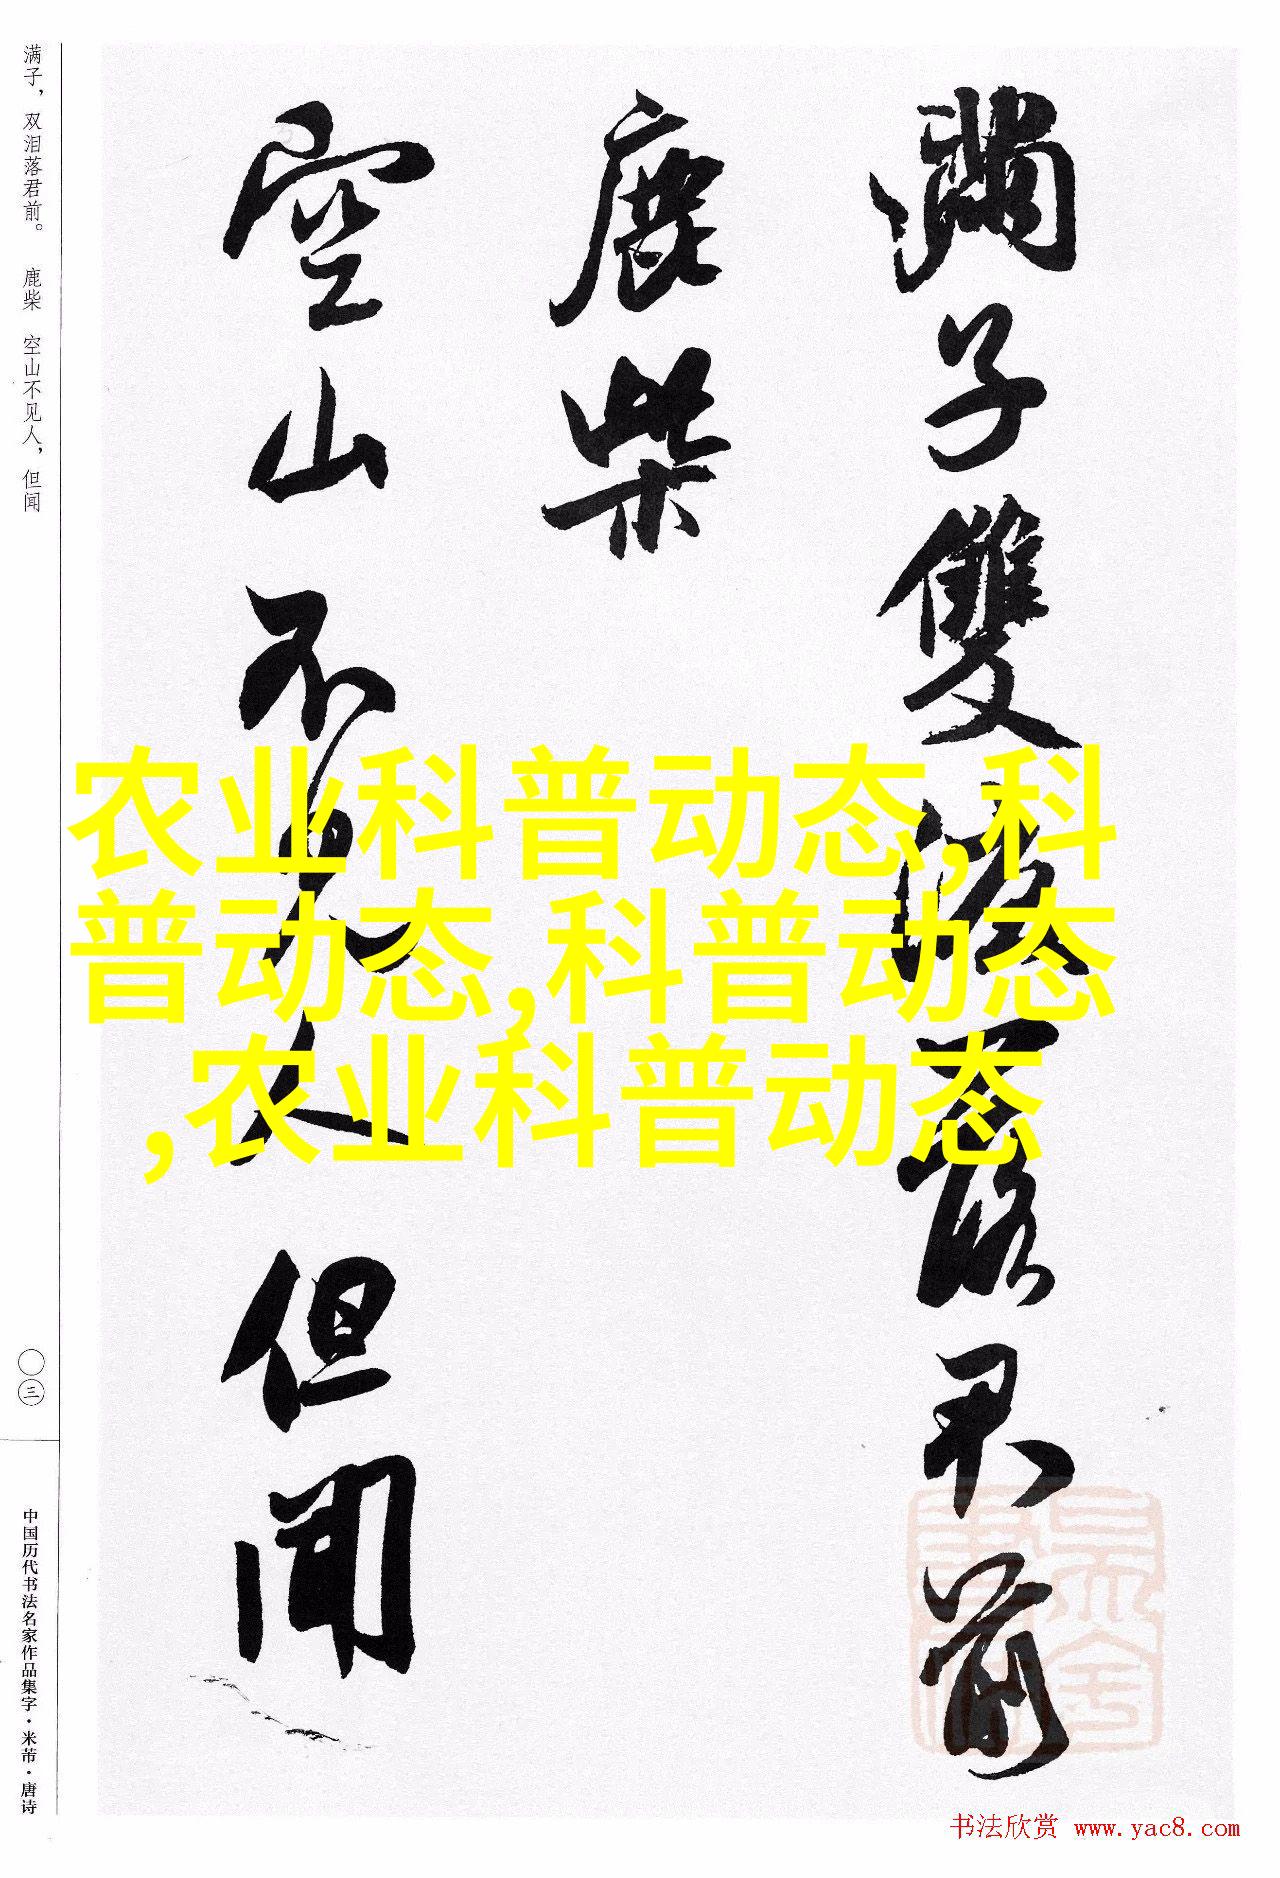 满子，双泪落君前。 鹿柴 空山不见人，但闻
〇三
中国历代书法名家作品集字·米芾·唐诗
滿子雙淚落君前
鹿柴
空山不見人但聞
农业科普动态,科
普动态,科普动态
,农业科普动态
书法欣赏 www.yac8.com